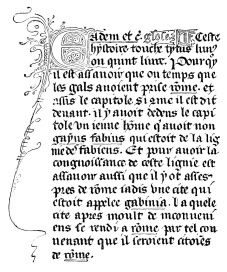 Eadem et c̄ glose. Ceste
hystoire touche tytus liuy⁹
ou quint liure. Pourquoy
il est assauoir que ou temps que
les gals auoient prise rōme. et
assis le capitole si cōme il est dit
deuant. il y auoit dedens le capi
tole vn ienne hōme q̇ auoit non
gayus fabius qui estoit de la lig
nie des fabiens. Et pour auoir la
congnoissance de ceste lignie est
assauoir aussi que il y ot asses
pres de rōme iadis vne cite qui
estoit appelee gabinia. La quele
cite apres moult de inconueni
ens se rendi a rōme par tel con
uenant que il seroient citoiēs
de rōme.